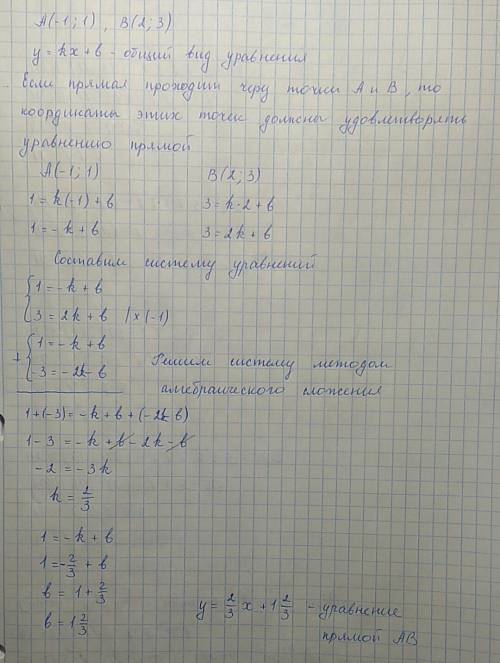 A(-1; 1), B(2; 3)
y = kx + b - общий вид уравнения
Если прямая проходит через точки A и B, то
координаты этих точек должны удовлетворять
уравнению прямой
A(-1; 1) B(2; 3)
1 = k(-1) + b 3 = k·2 + b
1 = -k + b 3 = 2k + b
Составим систему уравнений
{1 = -k + b
{3 = 2k + b | ×(-1)
+ {1 = -k + b
{-3 = -2k - b
Решим систему методом
алгебраического сложения
1 + (-3) = -k + b + (-2k - b)
1 - 3 = -k + b - 2k - b
-2 = -3k
k = 2/3
1 = -k + b
1 = -2/3 + b
b = 1 + 2/3
b = 1 2/3
y = 2/3 x + 1 2/3 - уравнение
прямой AB